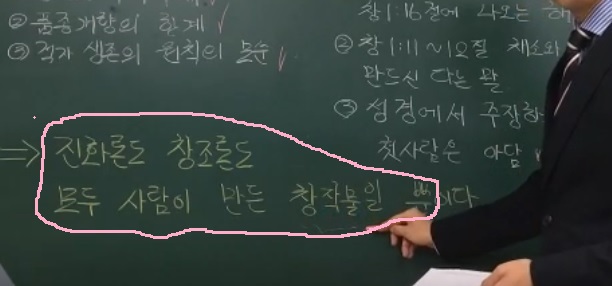 ② 품종개량의 한계
③ 적자 생존의 원칙의 모순
⇒ 진화론도 창조론도
모두 사람이 만든 창작물일 뿐이다
창1:16절에 나오는 해
② 창1:11~12절 채소와
만드신 다는 말
③ 성경에서 주장하
첫사람은 아담